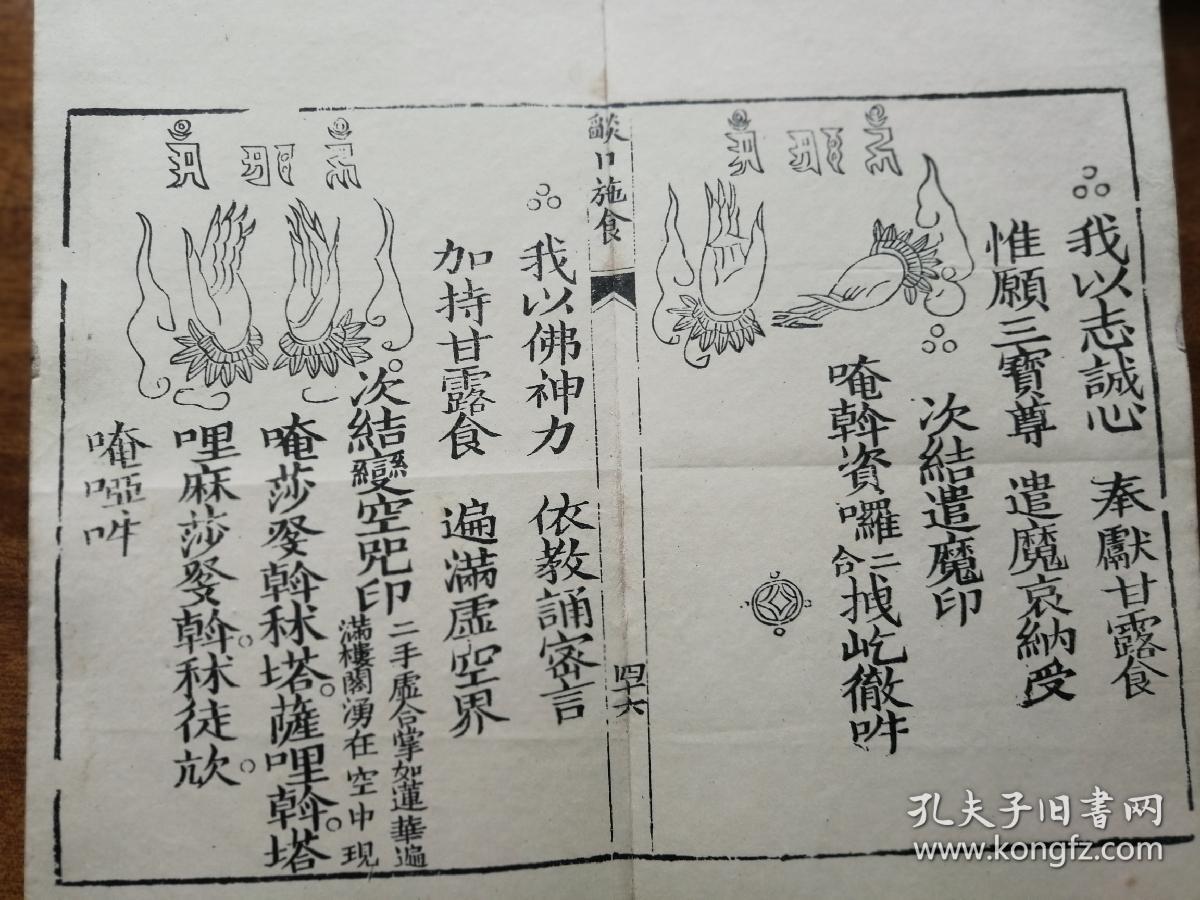 我以志誠心　奉獻甘露食
惟願三寶尊　遣魔哀納受
次結遣魔印
唵斡資囉二合拽屹徹吽
燄口施食
四十六
我以佛神力　依教誦密言
加持甘露食　遍滿虛空界
次結變空咒印二手虛合掌如蓮華遍
滿樓閣湧在空中現
唵莎癹斡秫塔。薩哩斡。塔
哩麻莎癹斡。秫徒㰠。
唵啞吽
孔夫子旧书网
www.kongfz.com